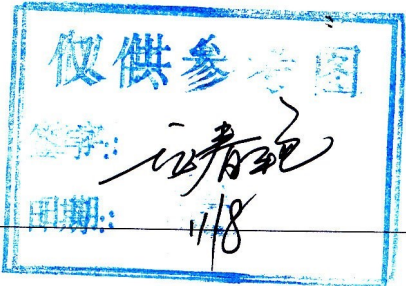 仅供参考图
签字:
日期: 11/8